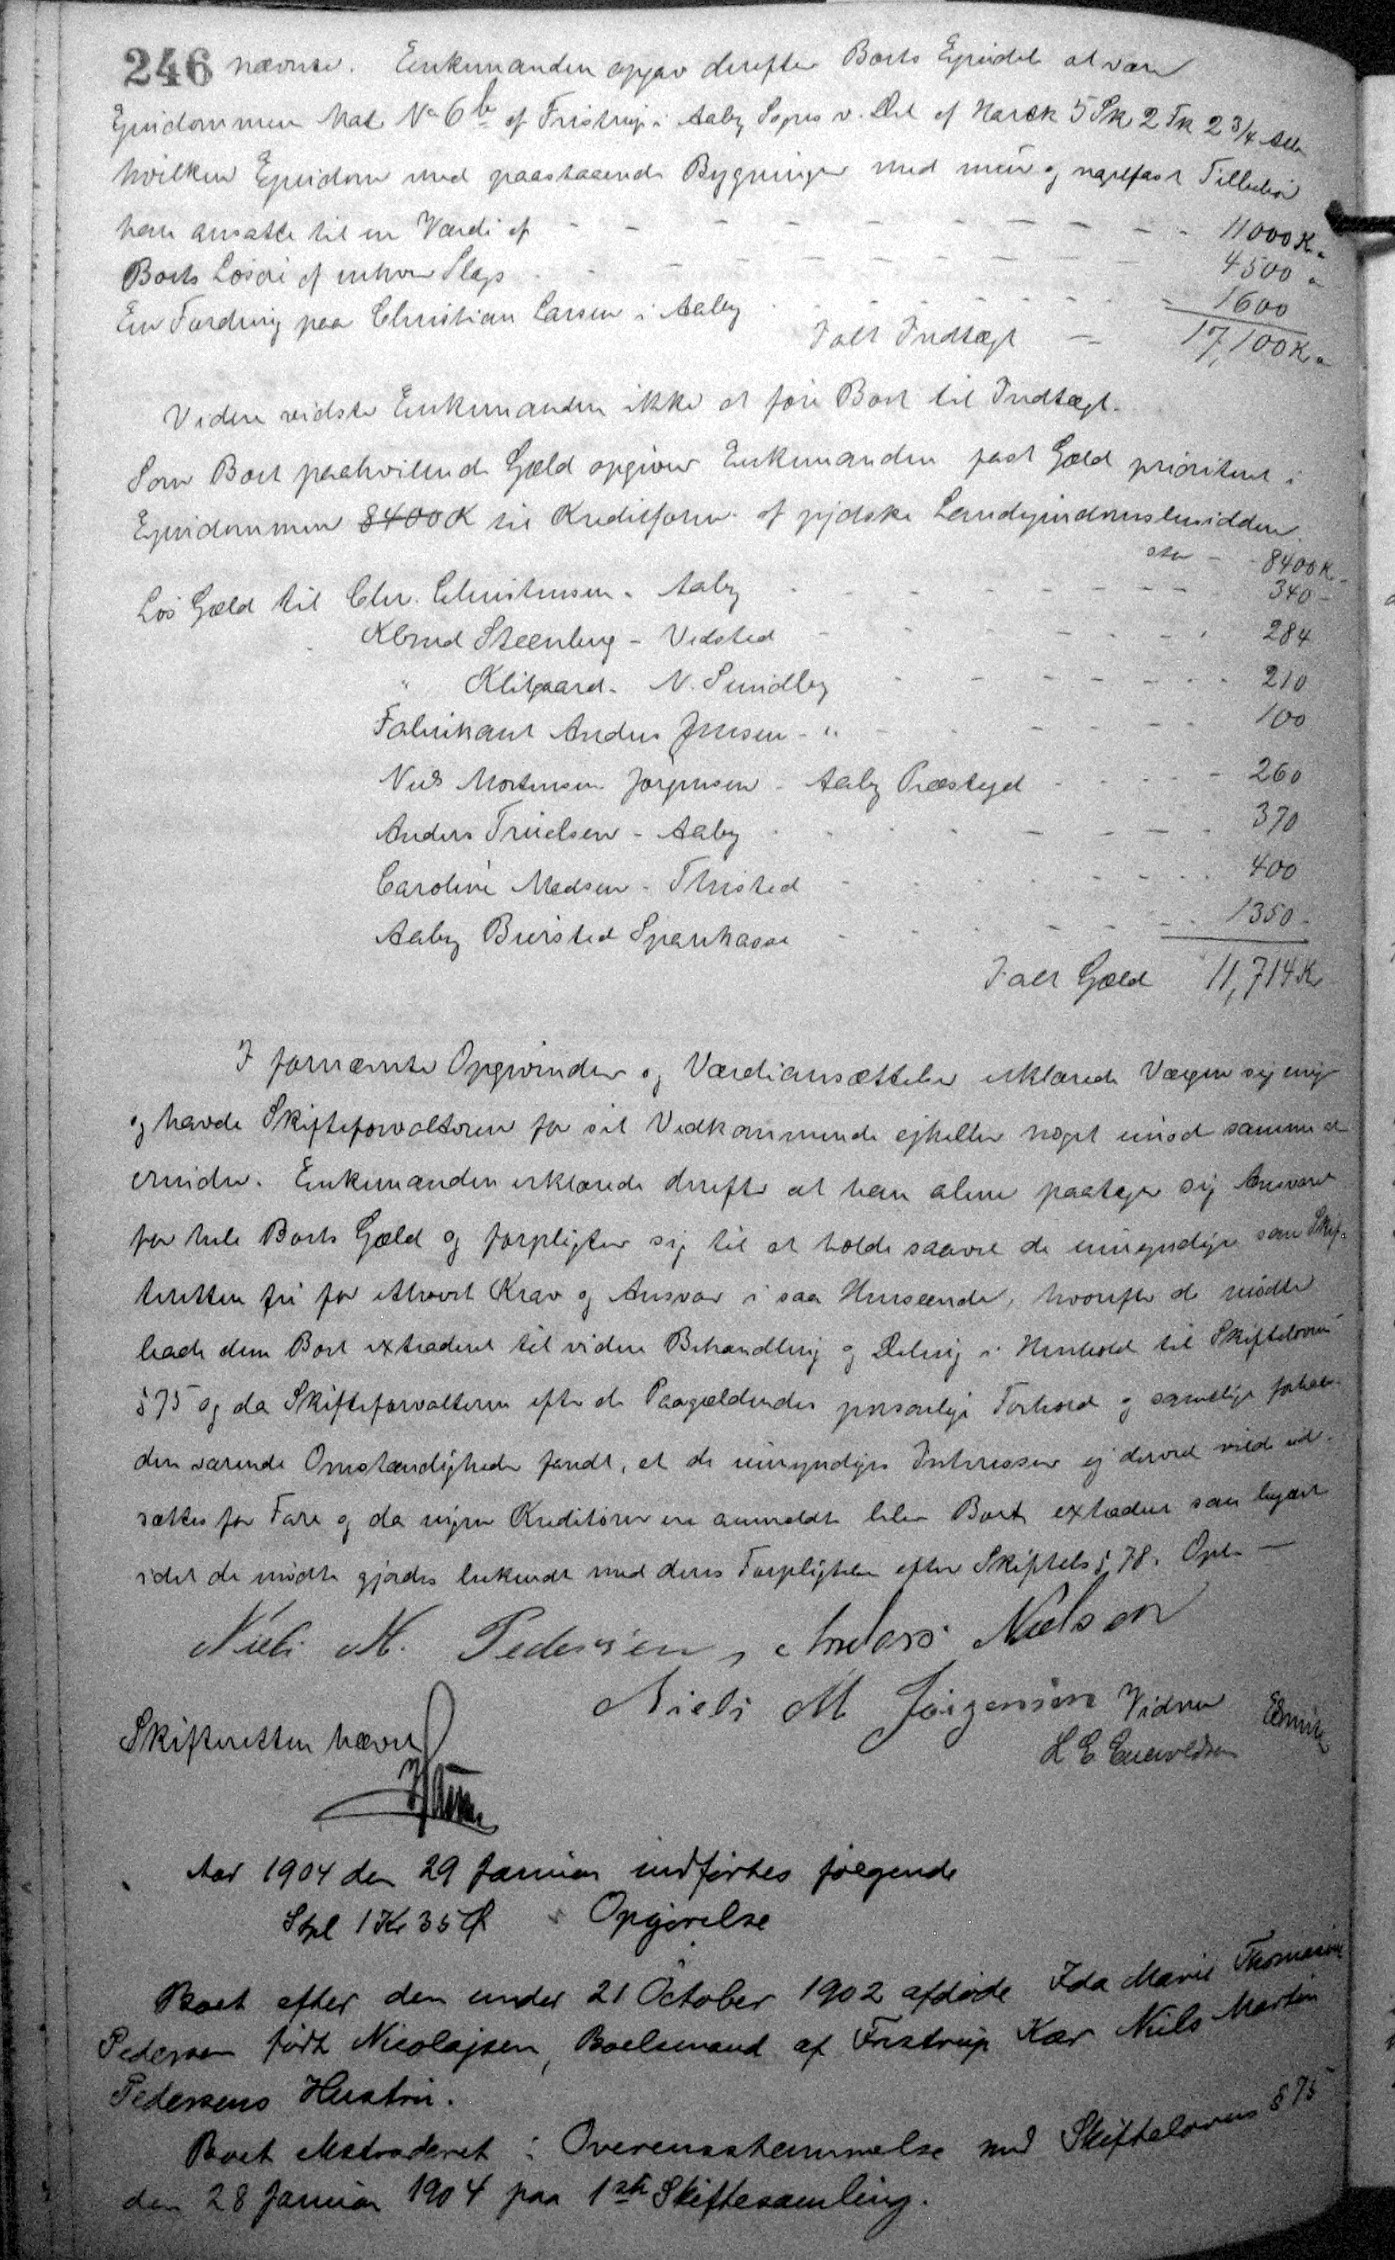 246 nævnte. Enkemanden opgav derefter Boets Ejendele at være
Ejendommen Mat No 6b af Fristrup i Aaby Sogns v. Del af Hartk 5 Sk 2 Fk 2 3/4 Alb
hvilken Ejendom med paastaaende Bygninger med mur og nagelfast Tilbehør
han ansatte til en Værdi af - - - - - - - - 11000 Kr "
Boets Løsøre af enhver Slags - - - - - - - - 4500 "
En Fordring paa Christian Larsen i Aaby - - - - - - 1600
Ialt Indtægt - 17,100 Kr "
Videre vidste Enkemanden ikke at føre Boet til Indtægt.
Som Boet paahvilende Gæld opgiver Enkemanden fast Gæld prioriteret i
Ejendommen 8400 K til Kreditforen. af jydske Landejendomsbesiddere
stor - - 8400 K -
Løs Gæld til Chr. Christensen - Aaby - - - - - - 340 -
Steenberg - Vedsted - - - - - - 284
" Klitgaard - N. Sundby - - - - - - 210
Fabrikant Anders Jensen - " - - - - - 100
Niels Mortensen Jørgensen - Aaby Præstegd - - - - 260
Anders Truelsen - Aaby - - - - - - 370
Caroline Madsen - Thisted - - - - - - 400
Aaby Biersted Sparekasse - - - - - - 1350 -
Ialt Gæld 11,714 Kr
I fornævnte Opgivender og Værdiansættelser erklærede Værgen sig enig
og havde Skifteforvalteren for sit Vedkommende ejheller noget imod samme at
erindre. Enkemanden erklærede derefter at han alene paatager sig Ansvaret
for hele Boets Gæld og forpligter sig til at holde saavel de umyndige som Skif-
teretten fri for ethvert Krav og Ansvar i saa Henseende, hvorefter de mødte
bade dem Boet extraderet til videre Behandling og Deling i Henhold til Skiftelovens
§ 75 og da Skifteforvalteren efter de Paagældendes personlige Forhold og samtlige forhaan-
den værende Omstændigheder fandt, at de umyndiges Interesser ej derved vilde ud-
sættes for Fare og da ingen Kreditorer ere anmeldte blev Boet extraderet som begært
idet de mødte gjordes bekendt med deres Forpligtelser efter Skiftels § 78. Opl -
Niels M. Pedersen, Anders Nielsen
Niels M Jørgensen Vidner
Skifteretten hævet L E Enevoldsen
Aar 1904 den 29 Januar indførtes følgende
Stpl 1 Kr 35 Ø Opgørelse
Boet efter den under 21 October 1902 afdøde Ida Marie Thomasine
Pedersen født Nicolajsen, Boelsmand af Fristrup Kær Niels Martin
Pedersens Hustru.
Boet ekstraderet i Overensstemmelse med Skiftelovens § 75
den 28 Januar 1904 paa 1ste Skiftesamling.